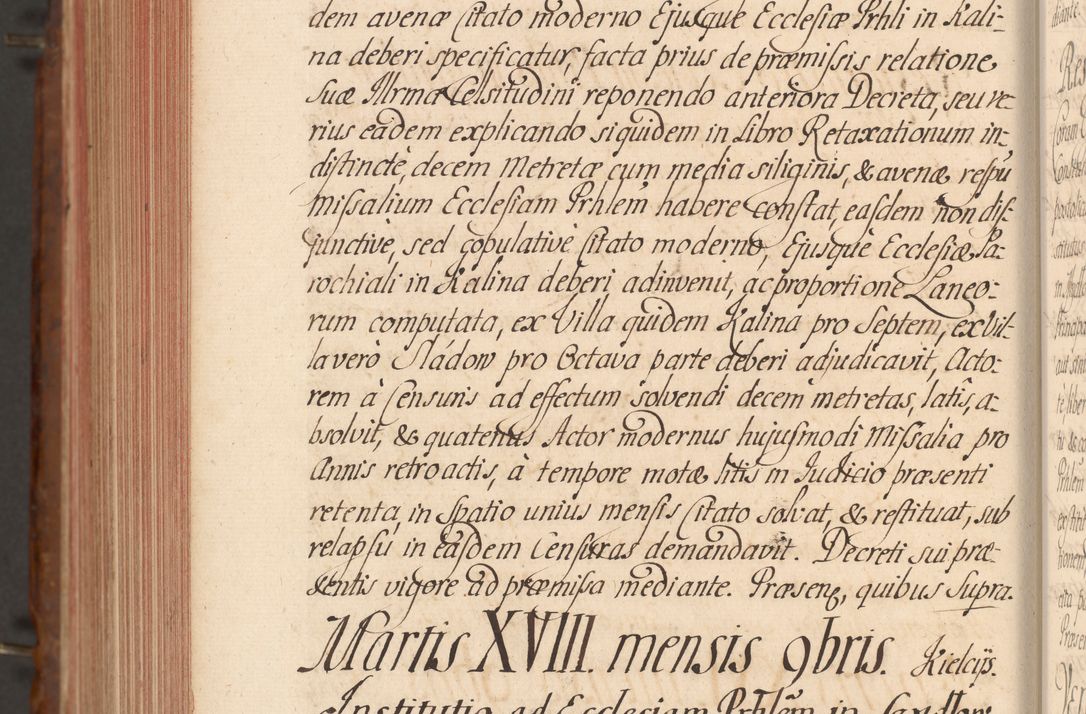 dem avenæ Citato moderno Ejusque Ecclesiæ Prhli in Kali-
na deberi specificatur, facta prius de præmissis relatione
Suæ Illrmæ Celsitudini reponendo anteriora Decreta, seu ve-
rius eadem explicando siquidem in Libro Retaxationum in-
distincte, decem Metretæ cum media siliginis, & avenæ respu
Missalium Ecclesiam Prhlem habere constat, easdem non dis-
junctivè, sed copulativè Citato moderno, Ejusque Ecclesiæ Pa-
rochiali in Kalina deberi adinvenit, ac proportione Laneo-
rum computata, ex Villa quidem Kalina pro Septem, ex Vil-
la verò Sládow pro Octava parte deberi adjudicavit, Acto-
rem à Censuris ad effectum solvendi decem metretas, latis, a-
bsolvit, & quatenus Actor modernus hujusmodi Missalia pro
Annis retroactis, à tempore motæ litis in Judicio præsenti
retenta, in Spatio unius mensis Citato solvat, & restituat, sub
relapsu in easdem Censuras demandavit. Decreti sui præ-
sentis vigore ad præmissa mediante. Præsens, quibus Supra.
Martis XVIII. mensis 9bris. Kielcijs.
Institutio ad Ecclesiam Prhlem in